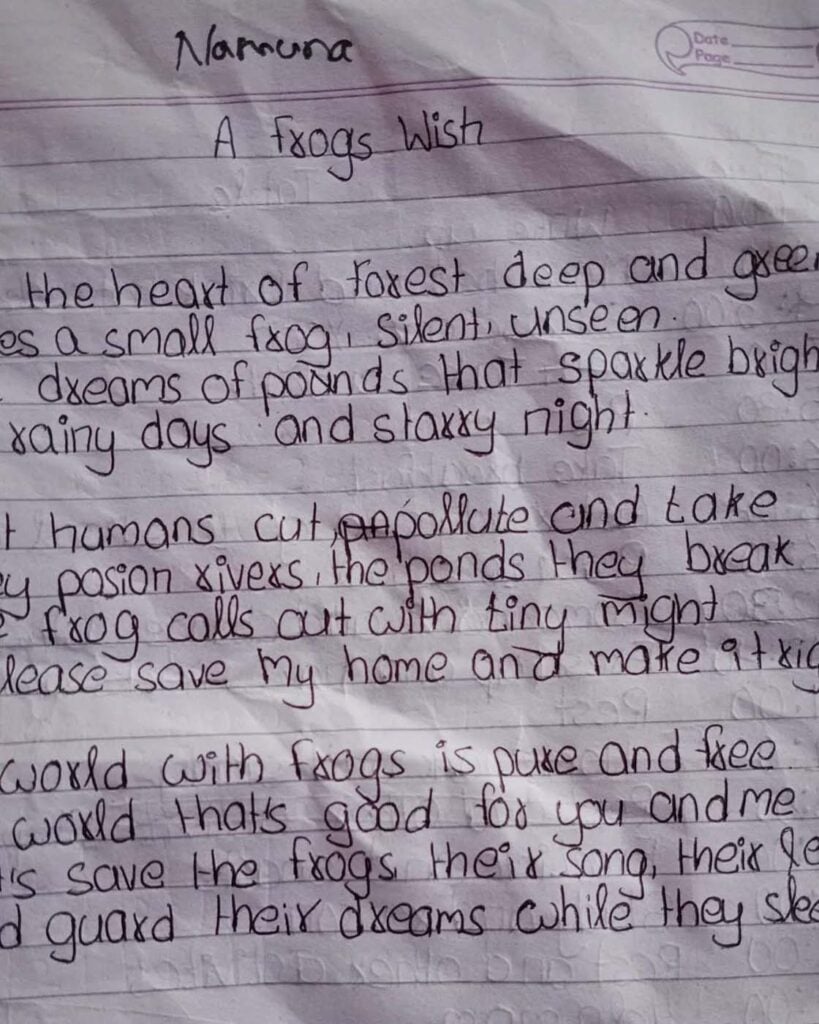 Namuna
Date
Page
A frogs Wish
the heart of forest deep and green
es a small frog, silent, unseen.
dreams of pounds that sparkle brigh
rainy days and starry night.
t humans cut, pollute and take
ey posion rivers, the ponds they break
e frog calls out with tiny might
lease save my home and make it rig
world with frogs is pure and free
world that's good for you and me
t's save the frogs their song, their le
d guard their dreams while they slee